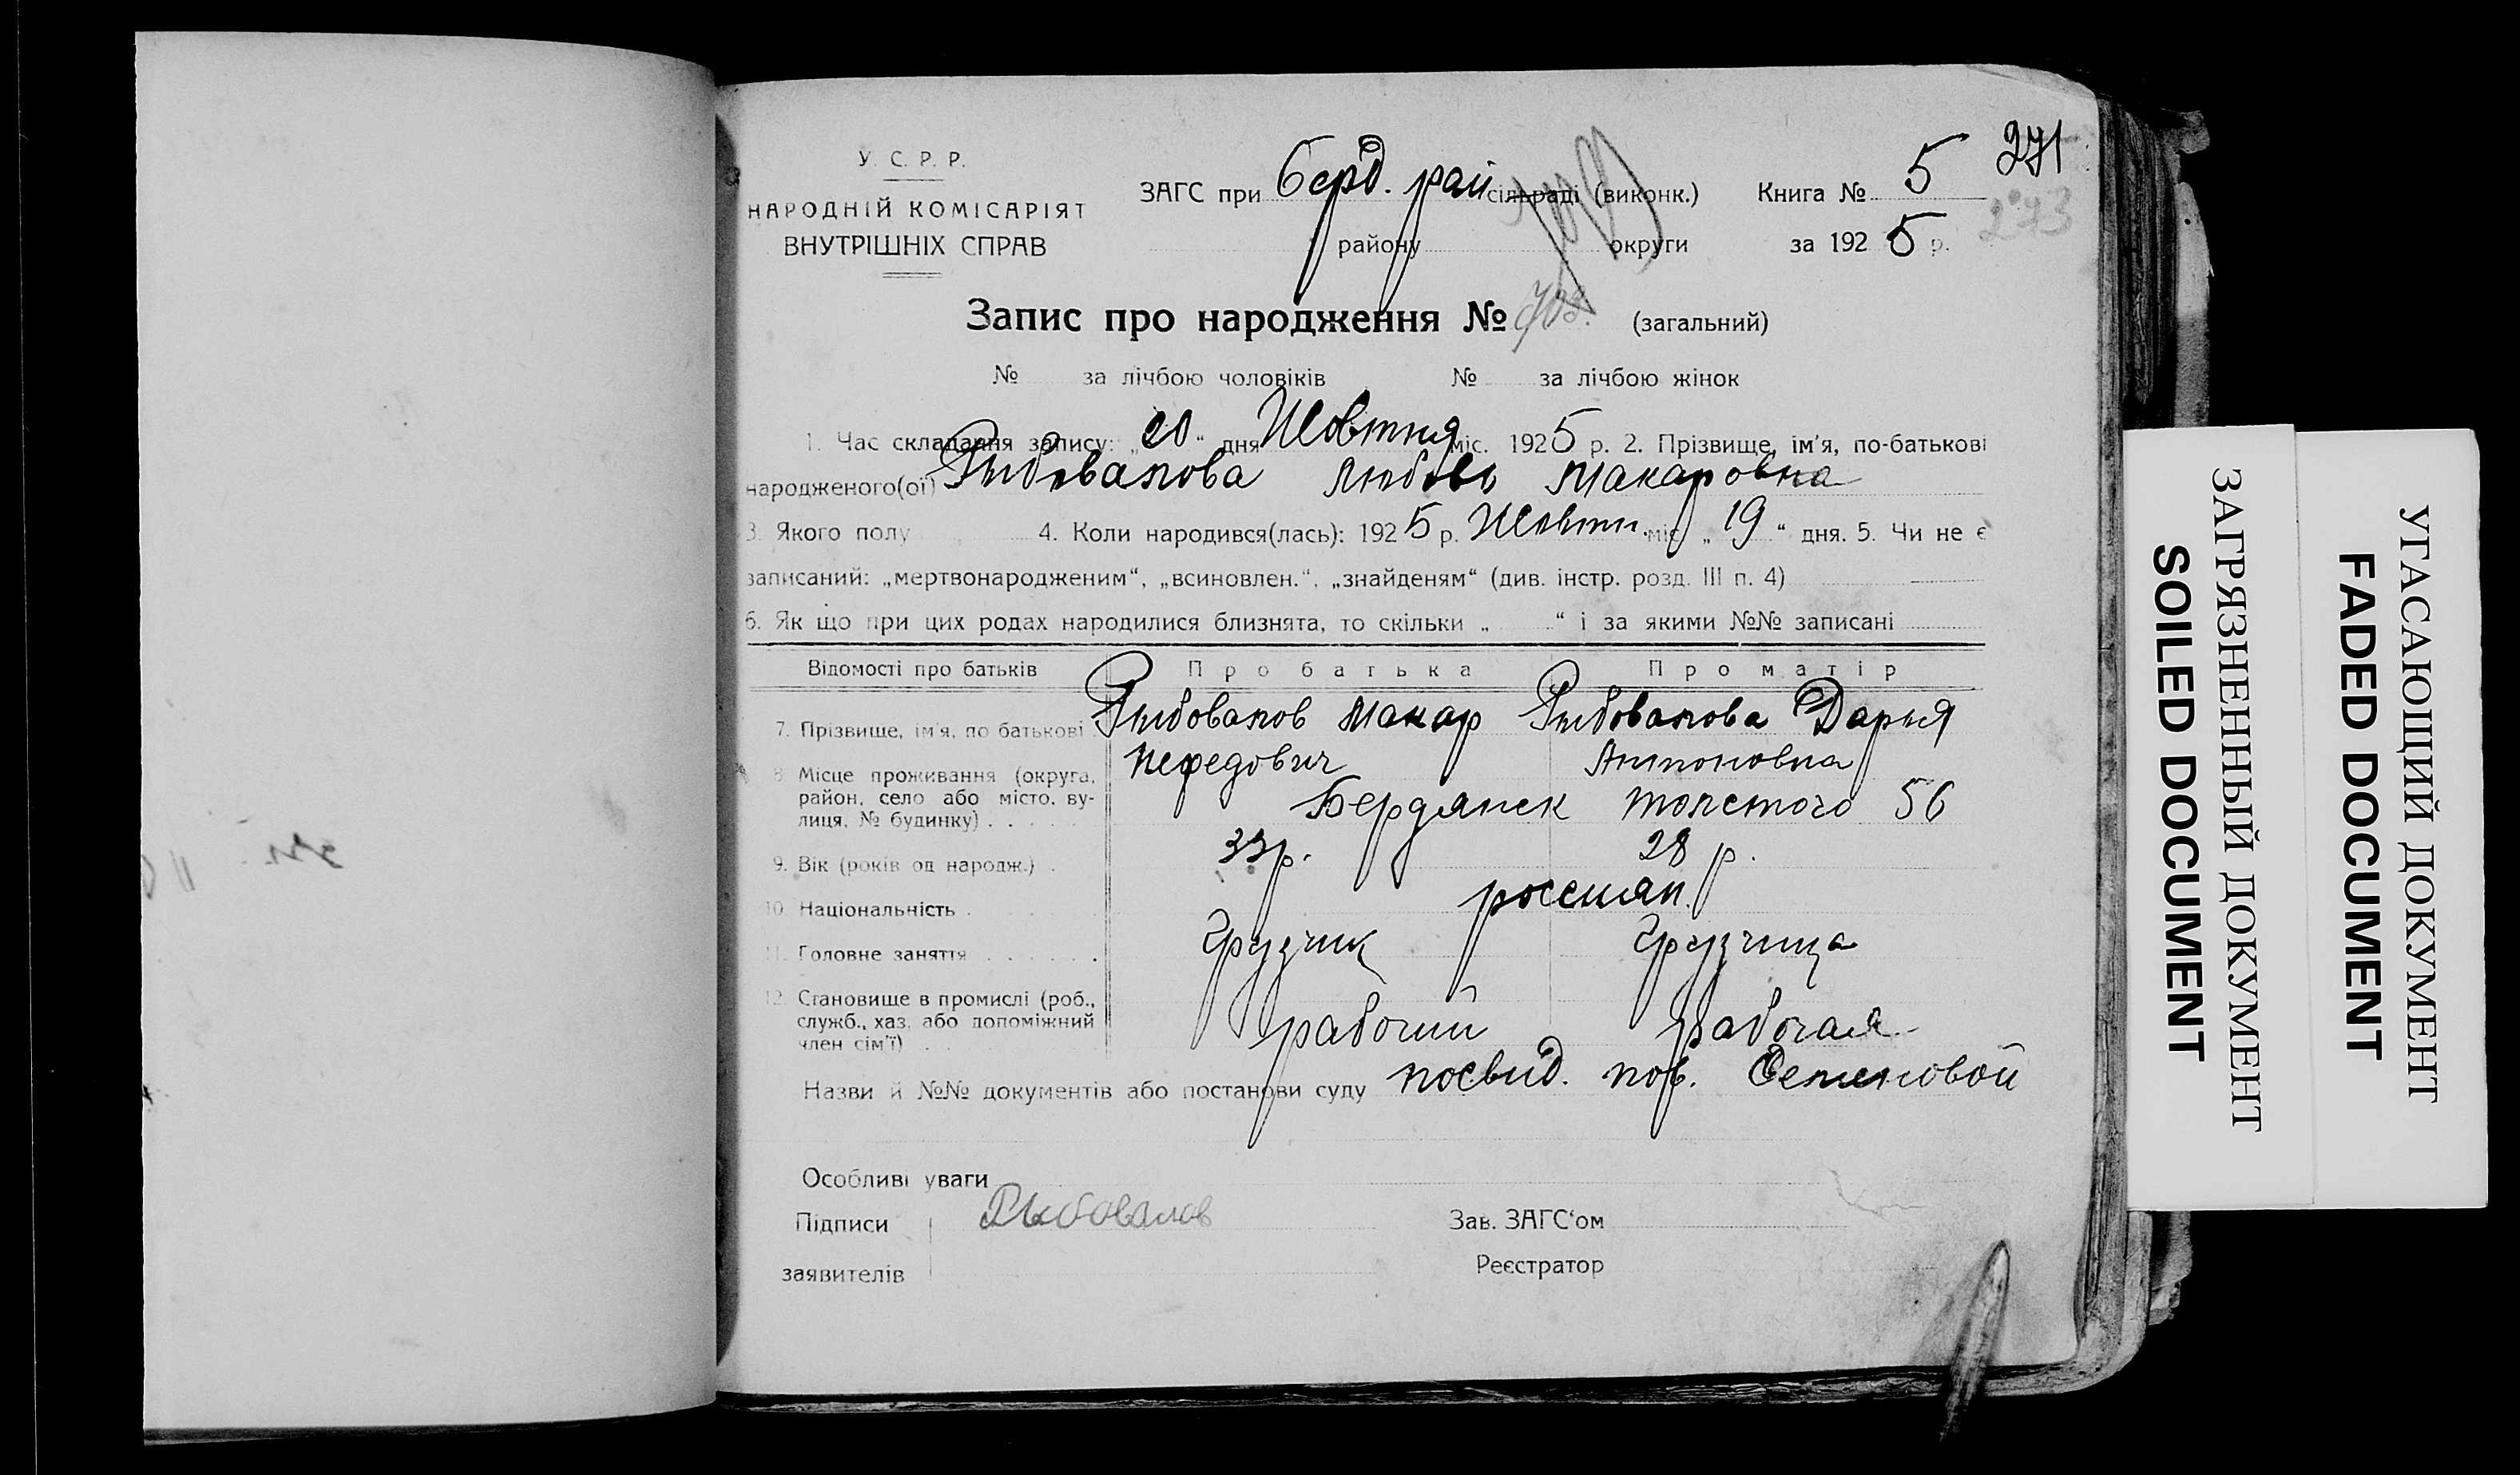 271
273
У. С. Р. Р.
НАРОДНІЙ КОМІСАРІЯТ
ВНУТРІШНІХ СПРАВ
ЗАГС при Берд. рай сільраді (виконк.) Книга № 5
району округи за 1925 р.
Запис про народження № 703. (загальний)
№ за лічбою чоловіків № за лічбою жінок
1. Час складання запису: „20“ дня Жовтня міс. 1925 р. 2. Прізвище, ім'я, по-батькові
народженого(ої) Рыбовалова Любовь Макаровна
3. Якого полу 4. Коли народився(лась): 1925 р. Жовтн. міс. „19“ дня. 5. Чи не є
записаний: „мертвонародженим“, „всиновлен.“, „знайденям“ (див. інстр. розд. III п. 4)
6. Як що при цих родах народилися близнята, то скільки „ “ і за якими №№ записані
Відомості про батьків Про батька Про матір
7. Прізвище, ім'я, по батькові Рыбовалов Макар Рыбовалова Дарья
Нефедович Антоновна
8. Місце проживання (округа,
район, село або місто, ву-
лиця, № будинку) Бердянск Толстого 56
9. Вік (років од народж.) 33 р. 28 р.
10. Національність россиян.
11. Головне заняття Грузчик Грузчица
12. Становище в промислі (роб.,
служб., хаз. або допоміжний
член сім'ї) рабочий рабочая
Назви й №№ документів або постанови суду посвид. пов. Семеновой
Особливі уваги
Підписи Рыбовалов Зав. ЗАГС'ом
заявителів Реєстратор
ЗАГРЯЗНЕННЫЙ ДОКУМЕНТ
SOILED DOCUMENT
УГАСАЮЩИЙ ДОКУМЕНТ
FADED DOCUMENT